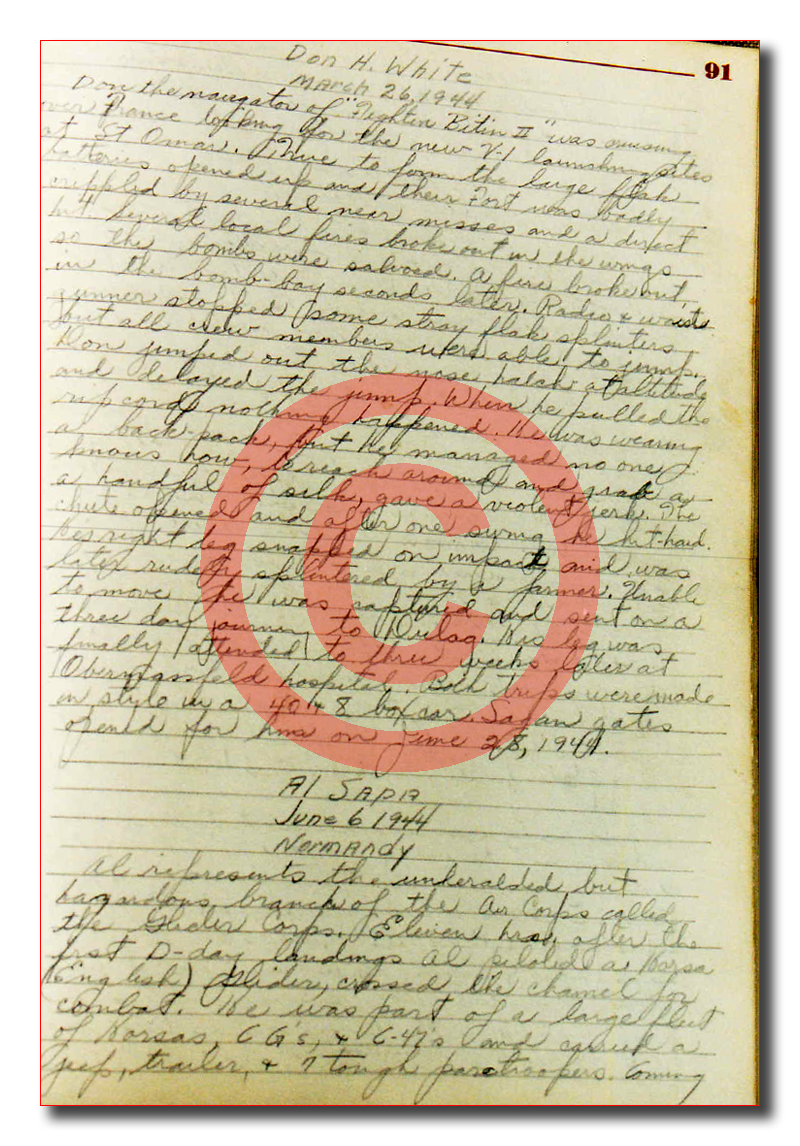 91
Don H. White
March 26, 1944
Don the navigator of "Fighten Bitin II" was cruising
over France looking for the new V-1 launching sites
at St Omar. True to form the large flak
batteries opened up and their Fort was badly
crippled by several near misses and a direct
hit. Several local fires broke out in the wings
so the bombs were salvoed. A fire broke out
in the bomb-bay seconds later. Radio & waist
gunner stopped some stray flak splinters
but all crew members were able to jump.
Don jumped out the nose hatch at altitude
and delayed the jump. When he pulled the
rip cord nothing happened. He was wearing
a back pack, but he managed no one
knows how, to reach around and grab a
a handful of silk, gave a violent jerk. The
chute opened and after one swing he hit-hard.
His right leg snapped on impact and was
later rudely splintered by a farmer. Unable
to move he was captured and sent on a
three day journey to Dulag. His leg was
finally attended to three weeks later at
Obermassfeld hospital. Both trips were made
in style in a 40 & 8 box car. Sagan gates
opened for him on June 28, 1944.
Al Sapa
June 6 1944
Normandy
Al represents the unheralded but
hazardous branch of the Air Corps called
the Glider Corps. Eleven hrs. after the
first D-day landings Al piloted a Horsa
(English) Glider, crossed the channel for
combat. He was part of a large fleet
of Horsas, CG's, & C-47s and carried a
jeep, trailer, & 7 tough paratroopers. Coming